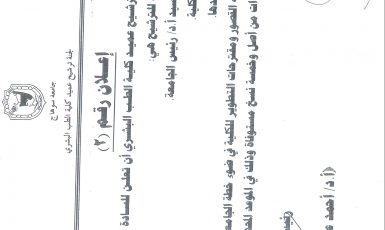 جامعة سوهاج
لجنة ترشيح عميد كلية الطب البشرى
إعلان رقم (٢)
ترشيح عميد كلية الطب البشرى أن تعلن للسادة
للترشيح هى:
سيد أ.د/ رئيس الجامعة.
كلية
القصور ومقترحات التطوير للكلية فى ضوء خطة الجامعة
ات من أصل وخمسة نسخ مستوفاة وذلك فى الموعد المحدد
(أ.د/ أحمد